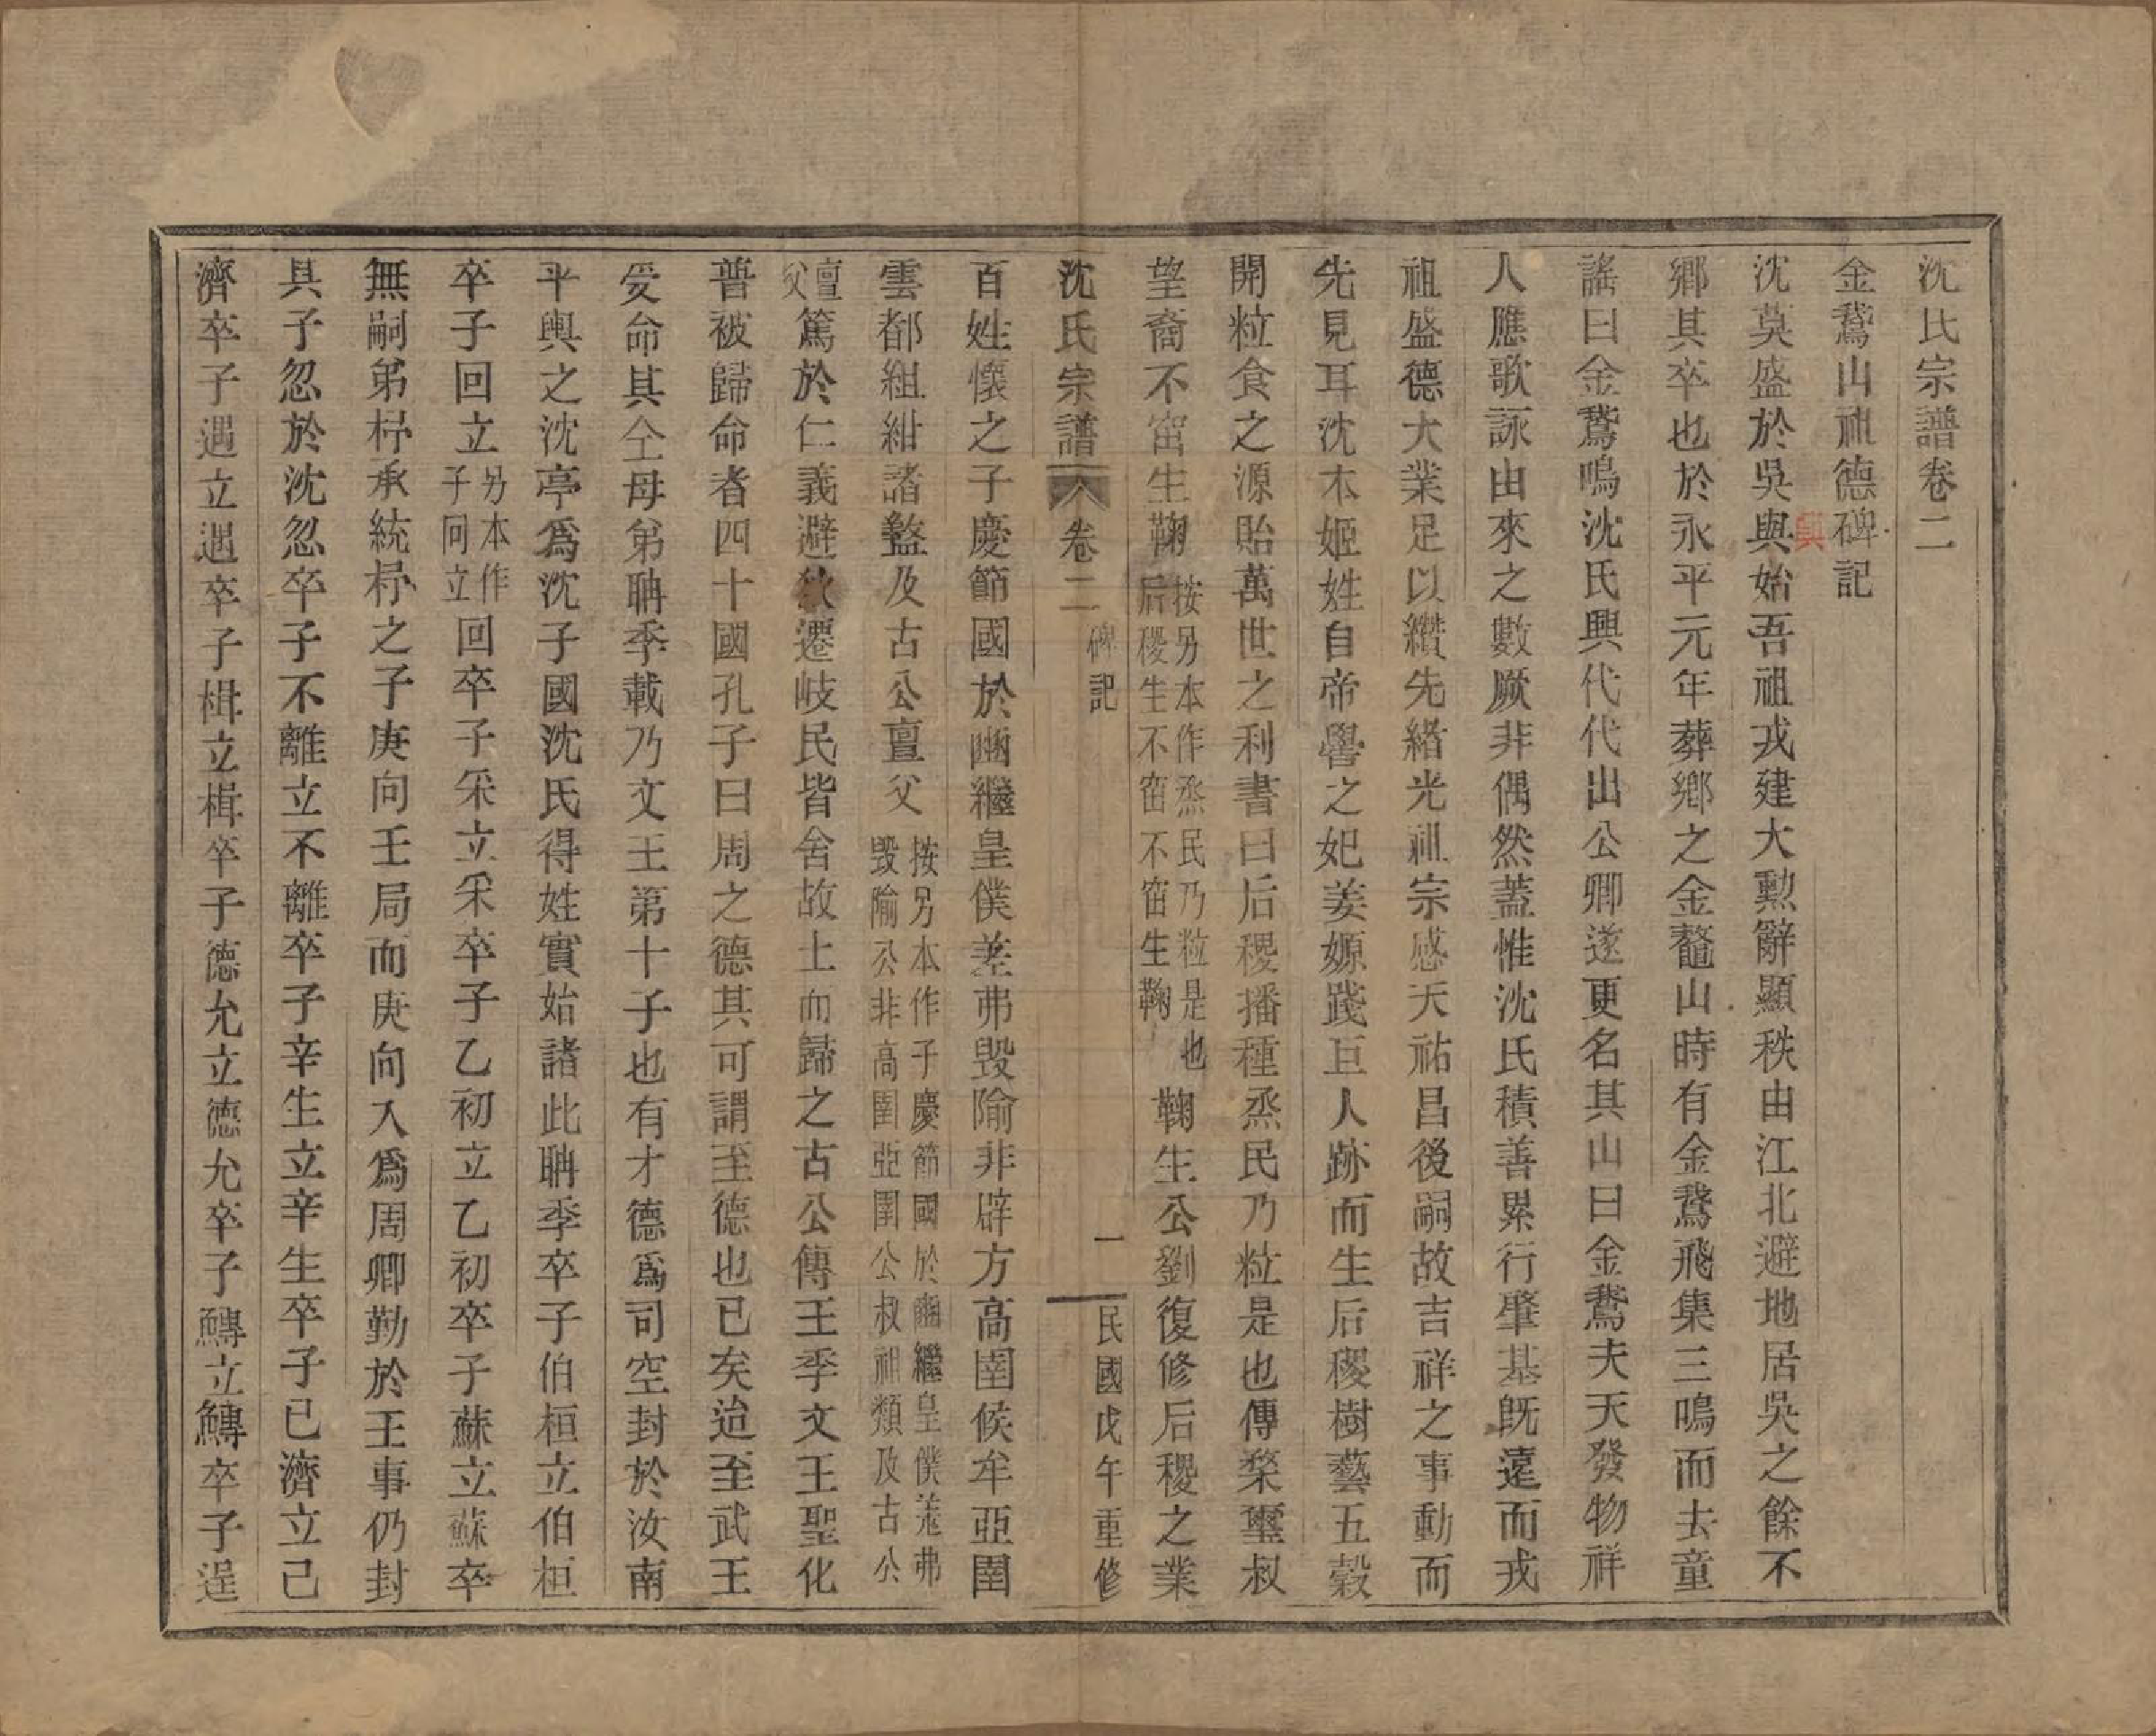 沈氏宗譜卷二
金鵞山祖德碑記
沈莫盛於吳與始吾祖戎建大勲辭顯秩由江北避地居吳之餘不
鄉其卒也於永平元年葬鄉之金鼇山時有金鵞飛集三鳴而去童
謠曰金鵞鳴沈氏興代代出公卿遂更名其山曰金鵞夫天發物祥
人應歌詠由來之數厥非偶然蓋惟沈氏積善累行肇基旣遠而戎
祖盛德大業足以纘先緒光祖宗感天祐昌後嗣故吉祥之事動而
先見耳沈本姬姓自帝嚳之妃姜嫄踐巨人跡而生后稷樹藝五穀
開粒食之源貽萬世之利書曰后稷播種烝民乃粒是也傳漦璽叔
望裔不窋生鞠按另本作烝民乃粒是也后稷生不窋不窋生鞠鞠生公劉復修后稷之業
沈氏宗譜 卷二 碑記 一 民國戊午重修
百姓懷之子慶節國於豳繼皇僕差弗毀隃非辟方高圉侯牟亞圉
雲都組紺諸盩及古公亶父按另本作子慶節國於豳繼皇僕羌弗毀隃公非高圉亞圉公叔祖類及古公
亶父篤於仁義避狄遷岐民皆舍故土而歸之古公傳王季文王聖化
普被歸命者四十國孔子曰周之德其可謂至德也已矣迨至武王
受命其仝母弟聃季載乃文王第十子也有才德爲司空封於汝南
平輿之沈亭爲沈子國沈氏得姓實始諸此聃季卒子伯桓立伯桓
卒子回立另本作子冋立回卒子采立采卒子乙初立乙初卒子蘇立蘇卒
無嗣弟杼承統杼之子庚向壬局而庚向入爲周卿勤於王事仍封
具子忽於沈忽卒子不離立不離卒子辛生立辛生卒子已濟立己
濟卒子遇立遇卒子楫立楫卒子德允立德允卒子鱄立鱄卒子逞
真